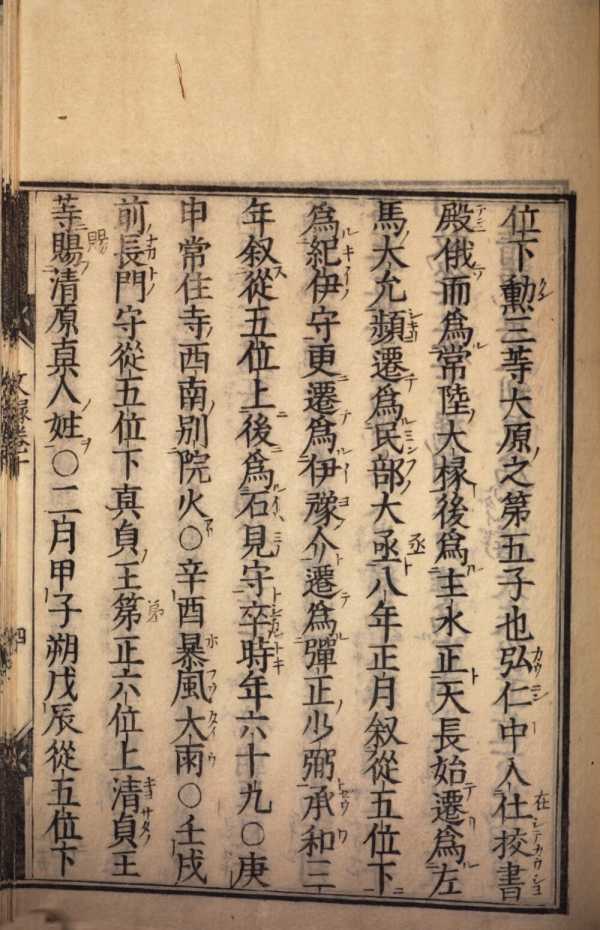 位下勲三等大原之第五子也弘仁中入仕挍書
殿俄而爲常陸大掾後爲主水正天長始遷爲左
馬大允頻遷爲民部大亟八年正月叙從五位下
爲紀伊守更遷爲伊豫介遷爲彈正少弼承和三
年叙從五位上後爲石見守卒時年六十九○庚
申常住寺西南別院火○辛酉暴風大雨○壬戌
前長門守從五位下真貞王第正六位上清貞王
等賜清原真人姓○二月甲子朔戊辰從五位下